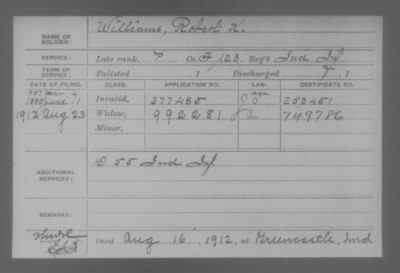 NAME OF SOLDIER: Williams, Robert K.
SERVICE: Late rank, Co. F, 123 Reg't Ind Inf
TERM OF SERVICE: Enlisted , 1 Discharged , 1
DATE OF FILING. CLASS. APPLICATION NO. LAW. CERTIFICATE NO.
1880 June 11 Invalid, 377485 253451
1912 Aug 23 Widow, 992281 749786
Minor,
ADDITIONAL SERVICES: D 55 Ind Inf
REMARKS:
Died Aug 16, 1912, at Greencastle, Ind